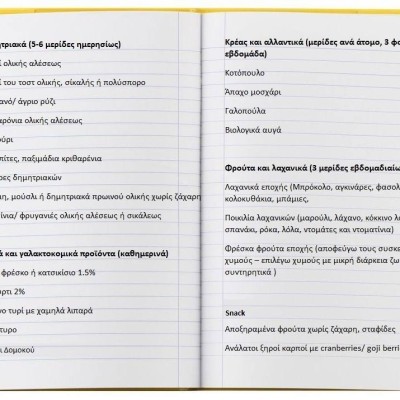 τριακά (5-6 μερίδες ημερησίως)
ί ολικής αλέσεως
ί του τοστ ολικής, σίκαλής ή πολύσπορο
ανό/ άγριο ρύζι
αρόνια ολικής αλέσεως
ούρι
πίτες, παξιμάδια κριθαρένια
ρες δημητριακών
μη, μούσλι ή δημητριακά πρωινού ολικής χωρίς ζάχαρη
ίνια/ φρυγανιές ολικής αλέσεως ή σικάλεως
ά και γαλακτοκομικά προϊόντα (καθημερινά)
φρέσκο ή κατσικίσιο 1.5%
ύρτι 2%
νο τυρί με χαμηλά λιπαρά
τυρο
ι Δομοκού
Κρέας και αλλαντικά (μερίδες ανά άτομο, 3 φο
εβδομάδα)
Κοτόπουλο
Άπαχο μοσχάρι
Γαλοπούλα
Βιολογικά αυγά
Φρούτα και λαχανικά (3 μερίδες εβδομαδιαίω
Λαχανικά εποχής (Μπρόκολο, αγκινάρες, φασολ
κολοκυθάκια, μπάμιες,
Ποικιλία λαχανικών (μαρούλι, λάχανο, κόκκινο λ
σπανάκι, ρόκα, λόλα, ντομάτες και ντοματίνια)
Φρέσκα φρούτα εποχής (αποφεύγω τους συσκε
χυμούς – επιλέγω χυμούς με μικρή διάρκεια ζω
συντηρητικά )
Snack
Αποξηραμένα φρούτα χωρίς ζάχαρη, σταφίδες
Ανάλατοι ξηροί καρποί με cranberries/ goji berri